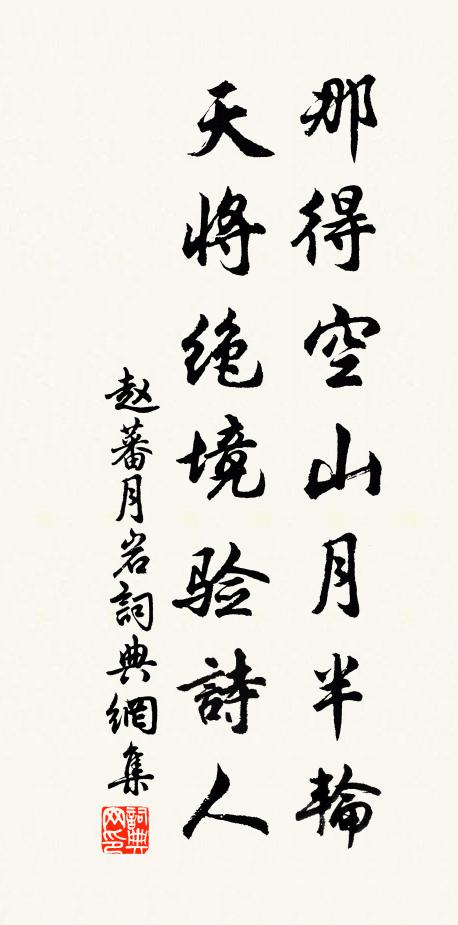 那得空山月半輪
天將绝境验詩人
赵蕃月岩詞典網集
詞典
网印